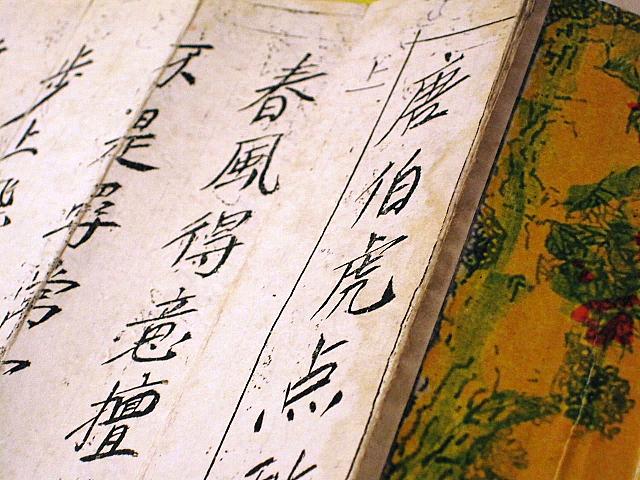 唐伯虎点
春風得意擅
不是常
步上